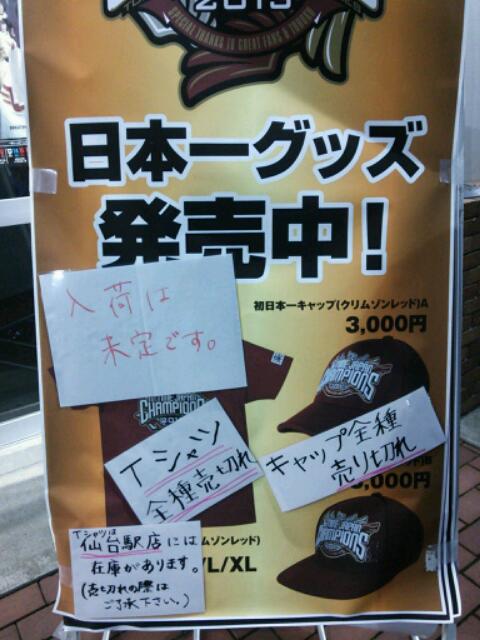 2013
SPECIAL THANKS TO GREAT FANS &
日本一グッズ
発売中!
入荷は
未定です。
初日本一キャップ(クリムゾンレッド)A
3,000円
CHAMPIONS
CHAMPIONS
Tシャツ
全種売切れ
キャップ全種
売り切れ
,000円
Tシャツは
仙台駅店には
在庫があります。
(売切れの際は
ご了承下さい。)
ムゾンレッド)
/L/XL
CHAMPIONS